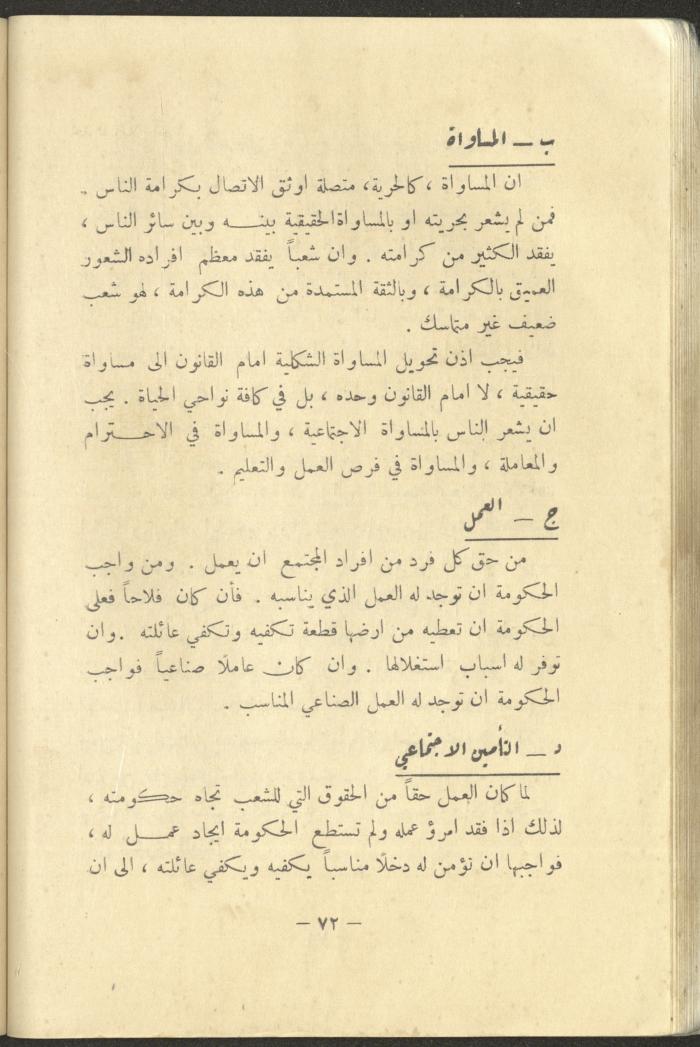 ب — المساواة
ان المساواة ، كالحرية، متصلة اوثق الاتصال بكرامة الناس .
فمن لم يشعر بحريته او بالمساواة الحقيقية بينـــه وبين سائر الناس ،
يفقد الكثير من كرامته . وان شعباً يفقد معظم افراده الشعور
العميق بالكرامة ، وبالثقة المستمدة من هذه الكرامة ، لهو شعب
ضعيف غير متماسك .
فيجب اذن تحويل المساواة الشكلية امام القانون الى مساواة
حقيقية ، لا امام القانون وحده ، بل في كافة نواحي الحياة . يجب
ان يشعر الناس بالمساواة الاجتماعية ، والمساواة في الاحـــترام
والمعاملة ، والمساواة في فرص العمل والتعليم .
ج — العمل
من حق كل فرد من افراد المجتمع ان يعمل . ومن واجب
الحكومة ان توجد له العمل الذي يناسبه . فأن كان فلاحاً فعلى
الحكومة ان تعطيه من ارضها قطعة تكفيه وتكفي عائلته .وان
توفر له اسباب استغلالها . وان كان عاملًا صناعياً فواجب
الحكومة ان توجد له العمل الصناعي المناسب .
د — التأمين الاجتماعي
لما كان العمل حقاً من الحقوق التي للشعب تجاه حكومته ،
لذلك اذا فقد امرؤ عمله ولم تستطع الحكومة ايجاد عمـــل له ،
فواجبها ان تؤمن له دخلًا مناسباً يكفيه ويكفي عائلته ، الى ان
— ٧٢ —